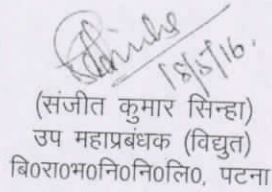 18/5/16.
(संजीत कुमार सिन्हा)
उप महाप्रबंधक (विद्युत)
बि०रा०भ०नि०नि०लि०, पटना